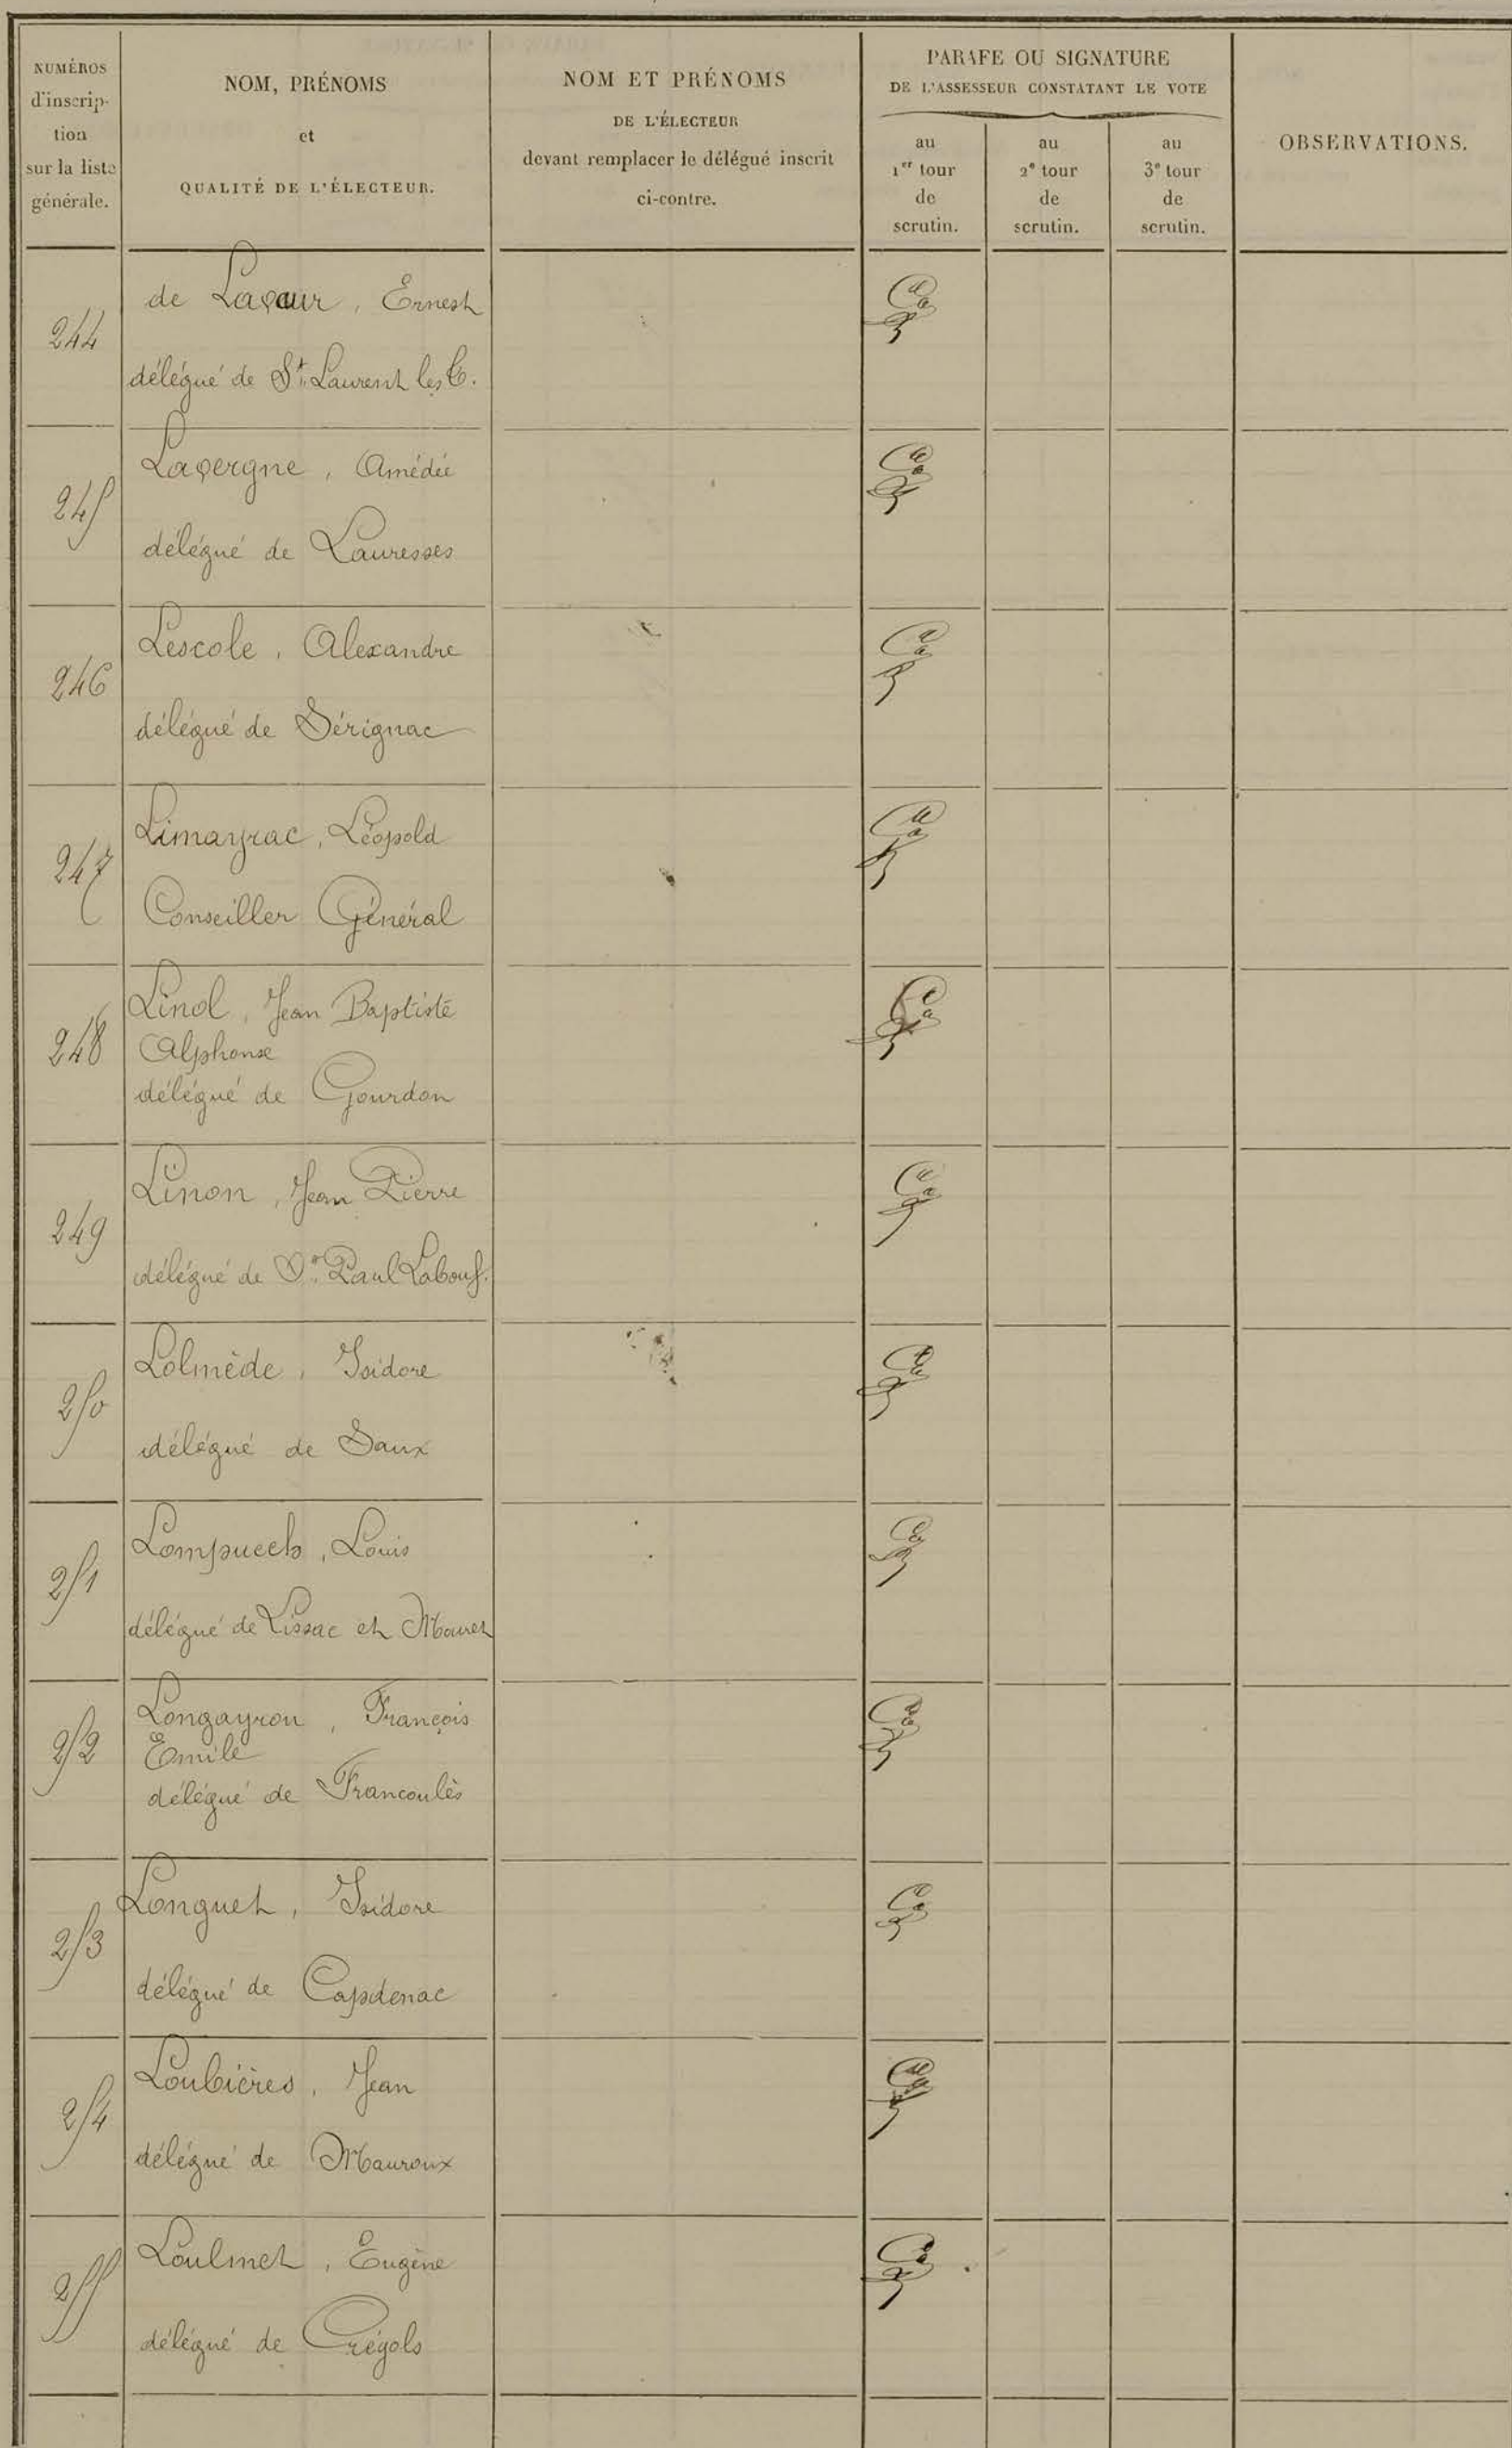 NUMÉROS
d'inscrip-
tion
sur la liste
générale.
NOM, PRÉNOMS
et
QUALITÉ DE L'ÉLECTEUR.
NOM ET PRÉNOMS
DE L'ÉLECTEUR
devant remplacer le délégué inscrit
ci-contre.
PARAFE OU SIGNATURE
DE L'ASSESSEUR CONSTATANT LE VOTE
au
1er tour
de
scrutin.
au
2e tour
de
scrutin.
au
3e tour
de
scrutin.
OBSERVATIONS.
244
de Lavaur, Ernest
délégué de St Laurent les T.
245
Lavergne, Amédée
délégué de Lauresses
246
Lescole, Alexandre
délégué de Sérignac
247
Limayrac, Léopold
Conseiller Général
248
Linol, Jean Baptiste
Alphonse
délégué de Gourdon
249
Linon, Jean Pierre
délégué de St Paul Labouf.
250
Lolmède, Isidore
délégué de Saux
251
Lompuech, Louis
délégué de Lissac et Mouret
252
Longayrou, François
Emile
délégué de Francoulès
253
Longuet, Isidore
délégué de Capdenac
254
Loubières, Jean
délégué de Mauroux
255
Loulmet, Eugène
délégué de Crégols